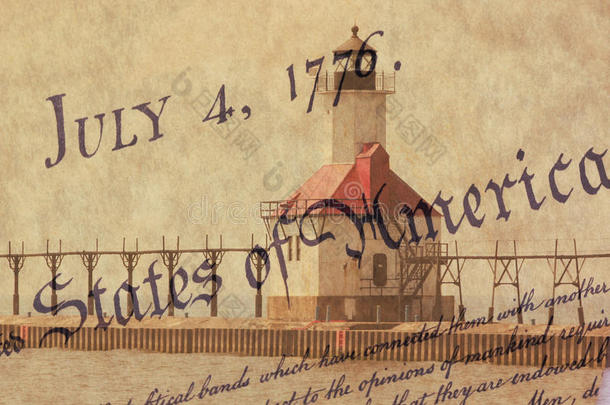 July 4, 1776.
States of America
which have connected them with another
bands
to the opinions of mankind requir
that they are endowed b
Men, de
dreamstime